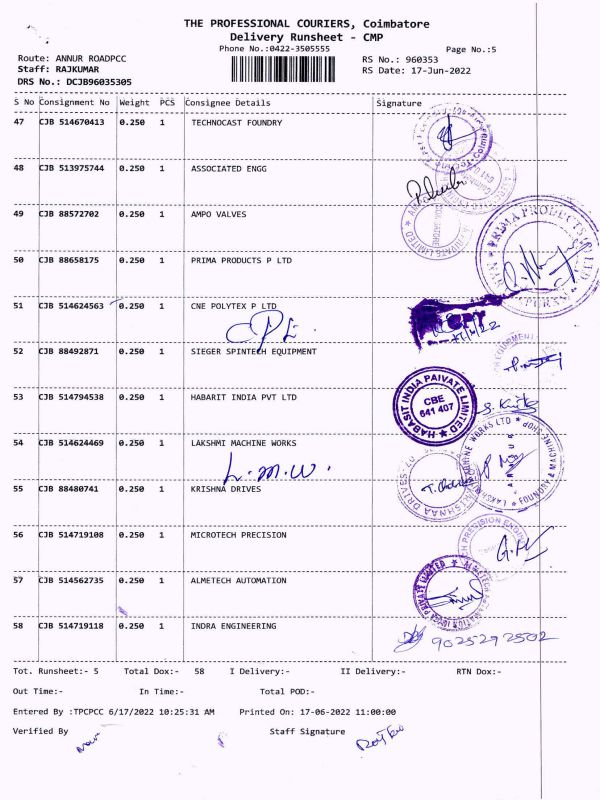 THE PROFESSIONAL COURIERS, Coimbatore
Delivery Runsheet - CMP
Phone No.:0422-3505555 Page No.:5
Route: ANNUR ROADPCC RS No.: 960353
Staff: RAJKUMAR RS Date: 17-Jun-2022
DRS No.: DCJB96035305
S No Consignment No Weight PCS Consignee Details Signature
47 CJB 514670413 0.250 1 TECHNOCAST FOUNDRY
48 CJB 513975744 0.250 1 ASSOCIATED ENGG
49 CJB 88572702 0.250 1 AMPO VALVES
50 CJB 88658175 0.250 1 PRIMA PRODUCTS P LTD
PRIMA PRODUCTS P LTD
51 CJB 514624563 0.250 1 CNE POLYTEX P LTD
52 CJB 88492871 0.250 1 SIEGER SPINTECH EQUIPMENT
53 CJB 514794538 0.250 1 HABARIT INDIA PVT LTD
HABASIT INDIA PAIVATE LIMITED
CBE
641 407
54 CJB 514624469 0.250 1 LAKSHMI MACHINE WORKS
L.M.W.
55 CJB 88480741 0.250 1 KRISHNA DRIVES
56 CJB 514719108 0.250 1 MICROTECH PRECISION
57 CJB 514562735 0.250 1 ALMETECH AUTOMATION
58 CJB 514719118 0.250 1 INDRA ENGINEERING
9025292502
Tot. Runsheet:- 5 Total Dox:- 58 I Delivery:- II Delivery:- RTN Dox:-
Out Time:- In Time:- Total POD:-
Entered By :TPCPCC 6/17/2022 10:25:31 AM Printed On: 17-06-2022 11:00:00
Verified By Staff Signature